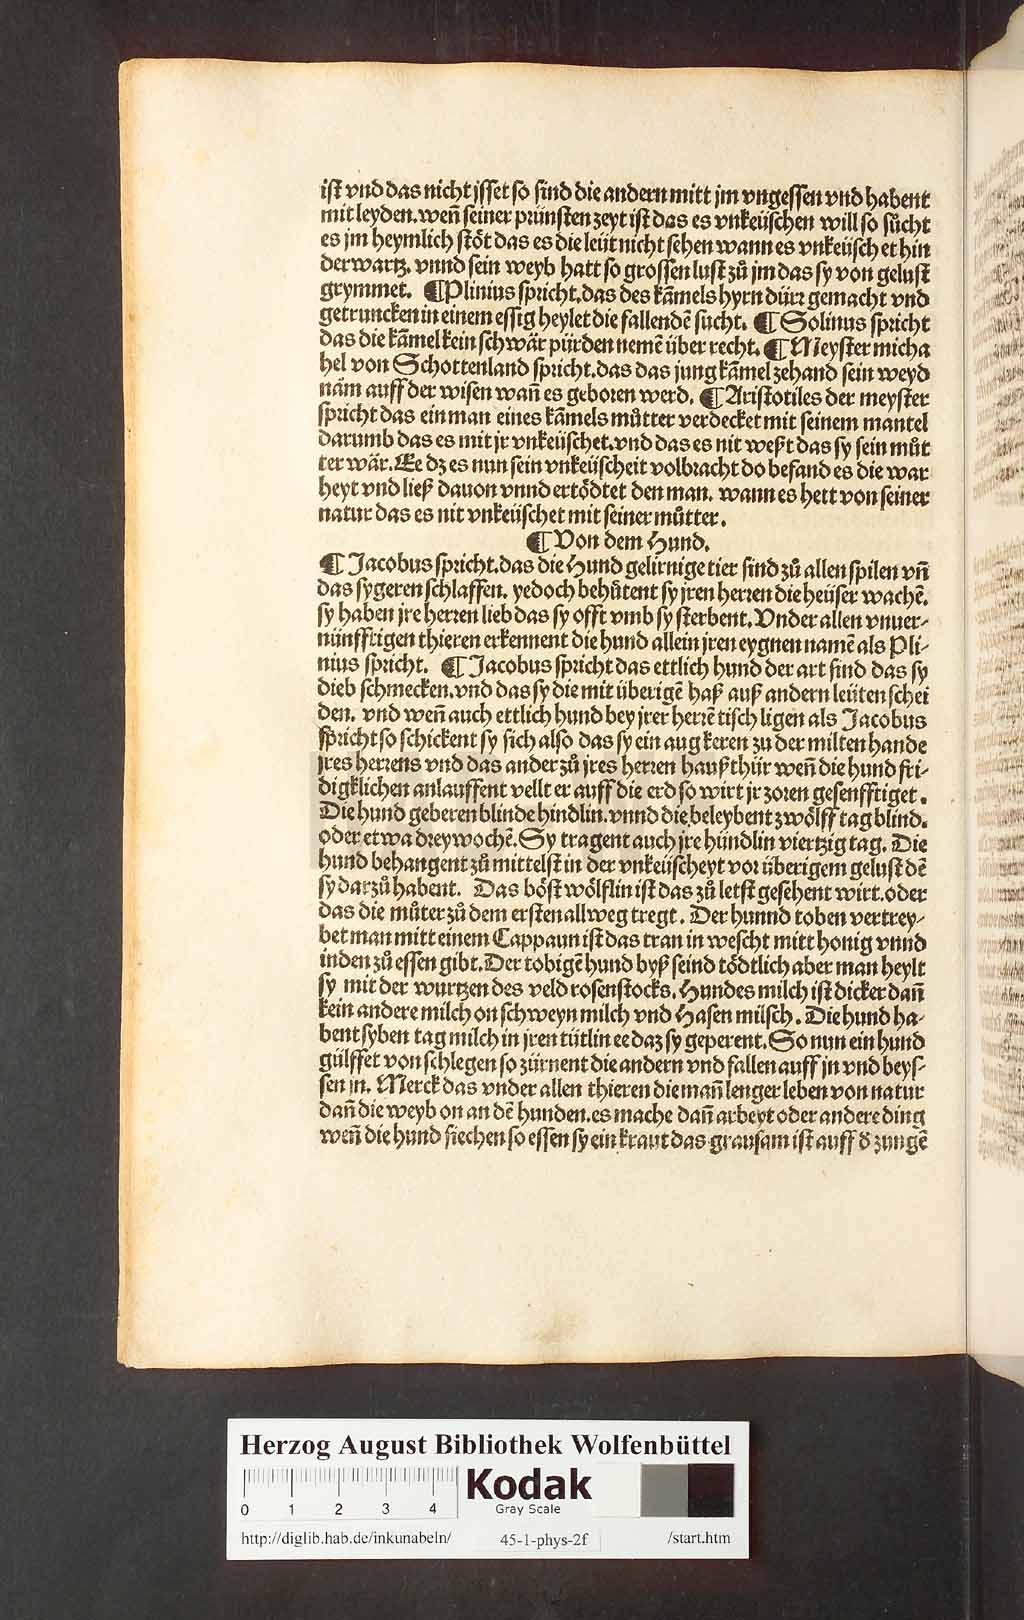 ist vnd das nicht jsset so sind die andern mitt jm vngessen vnd habent
mit leyden. weñ seiner prünsten zeyt ist das es vnkeüschen will so sücht
es jm heymlich stöt das es die leüt nicht sehen wann es vnkeüschet hin
derwartz. vnnd sein weyb hatt so grossen lust zů jm das sy von gelust
grymmet. ¶ Plinius spricht. das des kämels hyrn dürr gemacht vnd
getruncken in einem essig heylet die fallendē sucht. ¶ Solinus spricht
das die kämel kein schwär pürden nemē über recht. ¶ Meyster micha
hel von Schottenland spricht. das das jung kämel zehand sein weyd
näm auff der wisen wañ es geboren werd. ¶ Aristotiles der meyster
spricht das ein man eines kämels můtter verdecket mit seinem mantel
darumb das es mit jr vnkeüschet. vnd das es nit weßt das sy sein můt
ter wär. Ee dz es nun sein vnkeüscheit volbracht do befand es die war
heyt vnd ließ dauon vnnd ertödtet den man. wann es hett von seiner
natur das es nit vnkeüschet mit seiner můtter.
¶ Von dem Hund.
¶ Jacobus spricht. das die Hund gelirnige tier sind zů allen spilen vñ
das sy geren schlaffen. yedoch behůtent sy jren herren die heüser wachē.
sy haben jre herren lieb das sy offt vmb sy sterbent. Vnder allen vnuer-
nünfftigen thieren erkennent die hund allein jren eygnen namē als Pli-
nius spricht. ¶ Jacobus spricht das ettlich hund der art sind das sy
dieb schmecken. vnd das sy die mit überigē haß auß andern leüten schei
den. vnd weñ auch ettlich hund bey jrer herrē tisch ligen als Jacobus
spricht so schickent sy sich also das sy ein aug keren zu der milten hande
jres herrens vnd das ander zů jres herren haußthür weñ die hund fri-
digklichen anlauffent vellt er auff die erd so wirt jr zoren gesenfftiget.
Die hund geberen blinde hindlin. vnnd die beleybent zwölff tag blind.
oder etwa drey wochē. Sy tragent auch jre hündlin viertzig tag. Die
hund behangent zů mittelst in der vnkeüscheyt vor überigem gelust dē
sy darzů habent. Das böst wölflin ist das zů letst gesehent wirt. oder
das die můter zů dem ersten allweg tregt. Der hunnd toben vertrey-
bet man mitt einem Cappaun ist das tran in wescht mitt honig vnnd
inden zů essen gibt. Der tobigē hund byß seind tödtlich aber man heylt
sy mit der wurtzen des veld rosenstocks. Hundes milch ist dicker dañ
kein andere milch on schweyn milch vnd Hasen milsch. Die hund ha-
bent syben tag milch in jren tütlin ee daz sy geperent. So nun ein hund
gülffet von schlegen so zürnent die andern vnd fallen auff jn vnd beys-
sen jn. Merck das vnder allen thieren die mañ lenger leben von natur
dañ die weyb on an dē hunden. es mache dañ arbeyt oder andere ding
weñ die hund siechen so essen sy ein kraut das grausam ist auff d̕ zungē
Herzog August Bibliothek Wolfenbüttel
0 1 2 3 4
Kodak
Gray Scale
http://diglib.hab.de/inkunabeln/ 45-1-phys-2f /start.htm